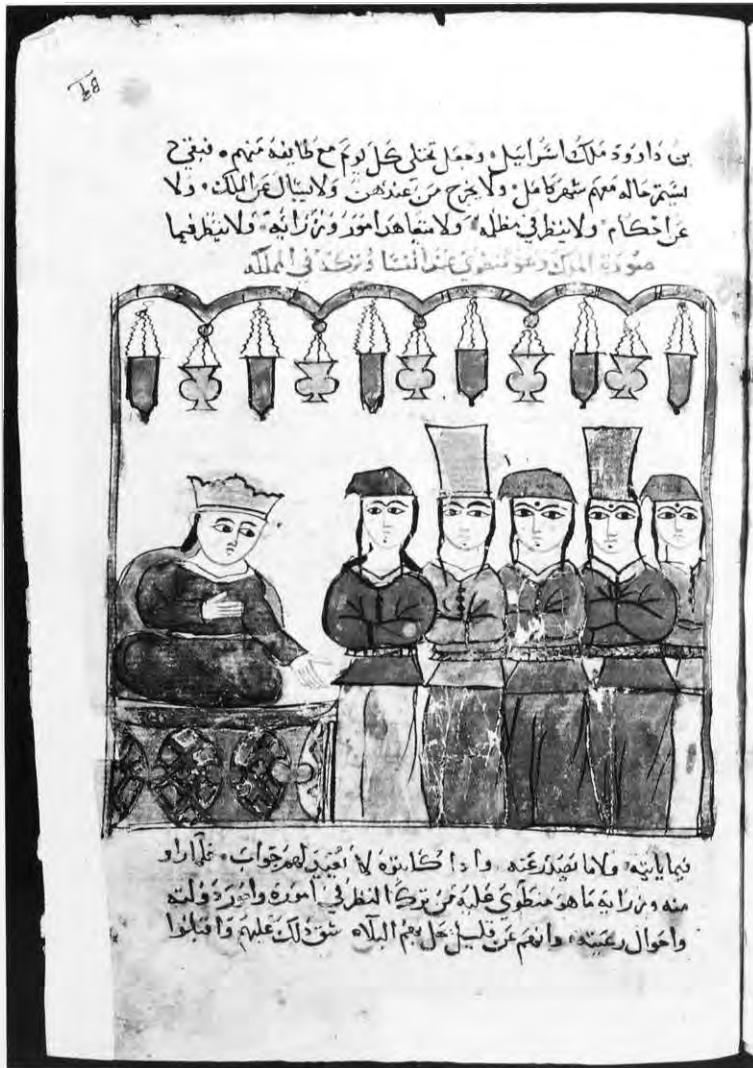 بن داوود ملك اسراييل وجعل تختلى كل يوم مع طايفة منهم فبقى ح
يستمر حاله معهم شهر كامل ولا يخرج من عندهن ولا يسال عن الملك ولا
عن احكام ولا ينظر في مظلمه ولا يتعاهد امور وزرايه ولا ينظر فيما
صورة الملك وهو منطوي عند النسا وتركه في المملكه
فيما ياتيه ولا ما يصدر عنه وادا كاتبوه لا يعيد لهم جواب فلما راو
منه وزرايه ما هو منطوى عليه من ترك النظر في اموره وامور دولته
واحوال رعيته وانهم عن قليل حل بهم البلاء شق دلك عليهم واقبلوا